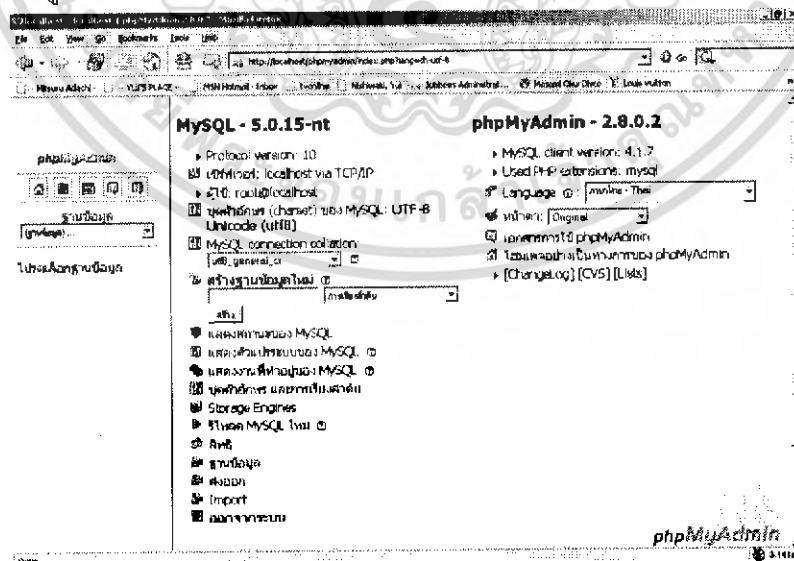 File Edit View Go Bookmarks Tools Help
http://localhost/phpmyadmin/index.php?lang=th-utf-8
MSN Hotmail - Inbox
Louis Vuitton
phpMyAdmin
ฐานข้อมูล
(ฐานข้อมูล)...
โปรดเลือกฐานข้อมูล
MySQL - 5.0.15-nt
Protocol version: 10
เซิร์ฟเวอร์: localhost via TCP/IP
ผู้ใช้: root@localhost
ชุดตัวอักษร (charset) ของ MySQL: UTF-8
Unicode (utf8)
MySQL connection collation
utf8_general_ci
สร้างฐานข้อมูลใหม่
การเรียงลำดับ
สร้าง
แสดงสถานะของ MySQL
แสดงตัวแปรระบบของ MySQL
แสดงงานที่ทำอยู่ของ MySQL
ชุดตัวอักษร และการเรียงลำดับ
Storage Engines
รีโหลด MySQL ใหม่
สิทธิ
ฐานข้อมูล
ส่งออก
Import
ออกจากระบบ
phpMyAdmin - 2.8.0.2
MySQL client version: 4.1.7
Used PHP extensions: mysql
Language : ภาษาไทย - Thai
หน้าตา: Original
เอกสารการใช้ phpMyAdmin
โฮมเพจอย่างเป็นทางการของ phpMyAdmin
[ChangeLog] [CVS] [Lists]
phpMyAdmin